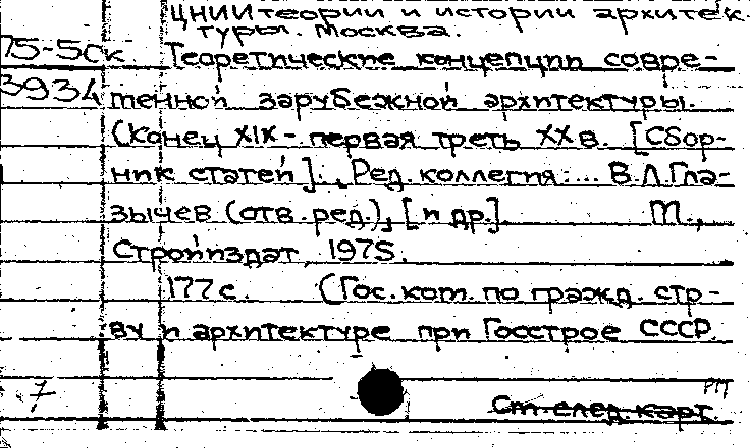 ЦНИИ теории и истории архитек.
туры. Москва.
75-5ск. Теоретические концепции совре-
3934 менной зарубежной архитектуры.
(Конец XIX - первая треть XX в. [Сбор-
ник статей]. Ред. коллегия: ... В.Л. Гла-
зычев (отв. ред.), [и др.]. М.,
Стройиздат, 1975.
177 с. (Гос. ком. по гражд. стр-
ву и архитектуре при Госстрое СССР.
7 См. след. карт.